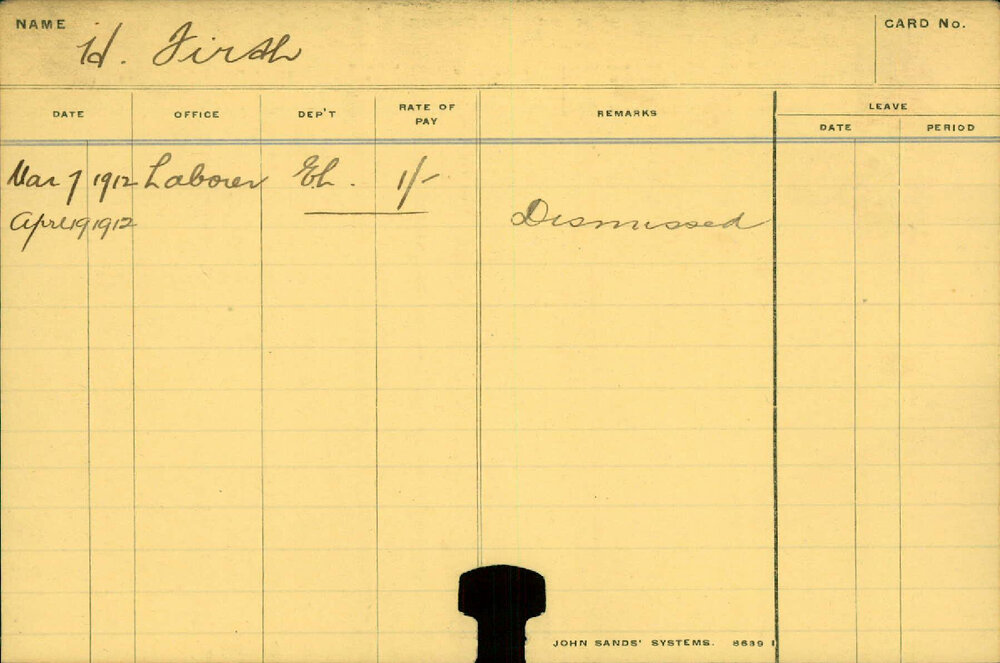 NAME H. Firth CARD No.
DATE OFFICE DEP'T RATE OF PAY REMARKS LEAVE
DATE PERIOD
Mar 7 1912 Laborer Eh. 1/-
Apr 19 1912 Dismissed
JOHN SANDS' SYSTEMS. 8639